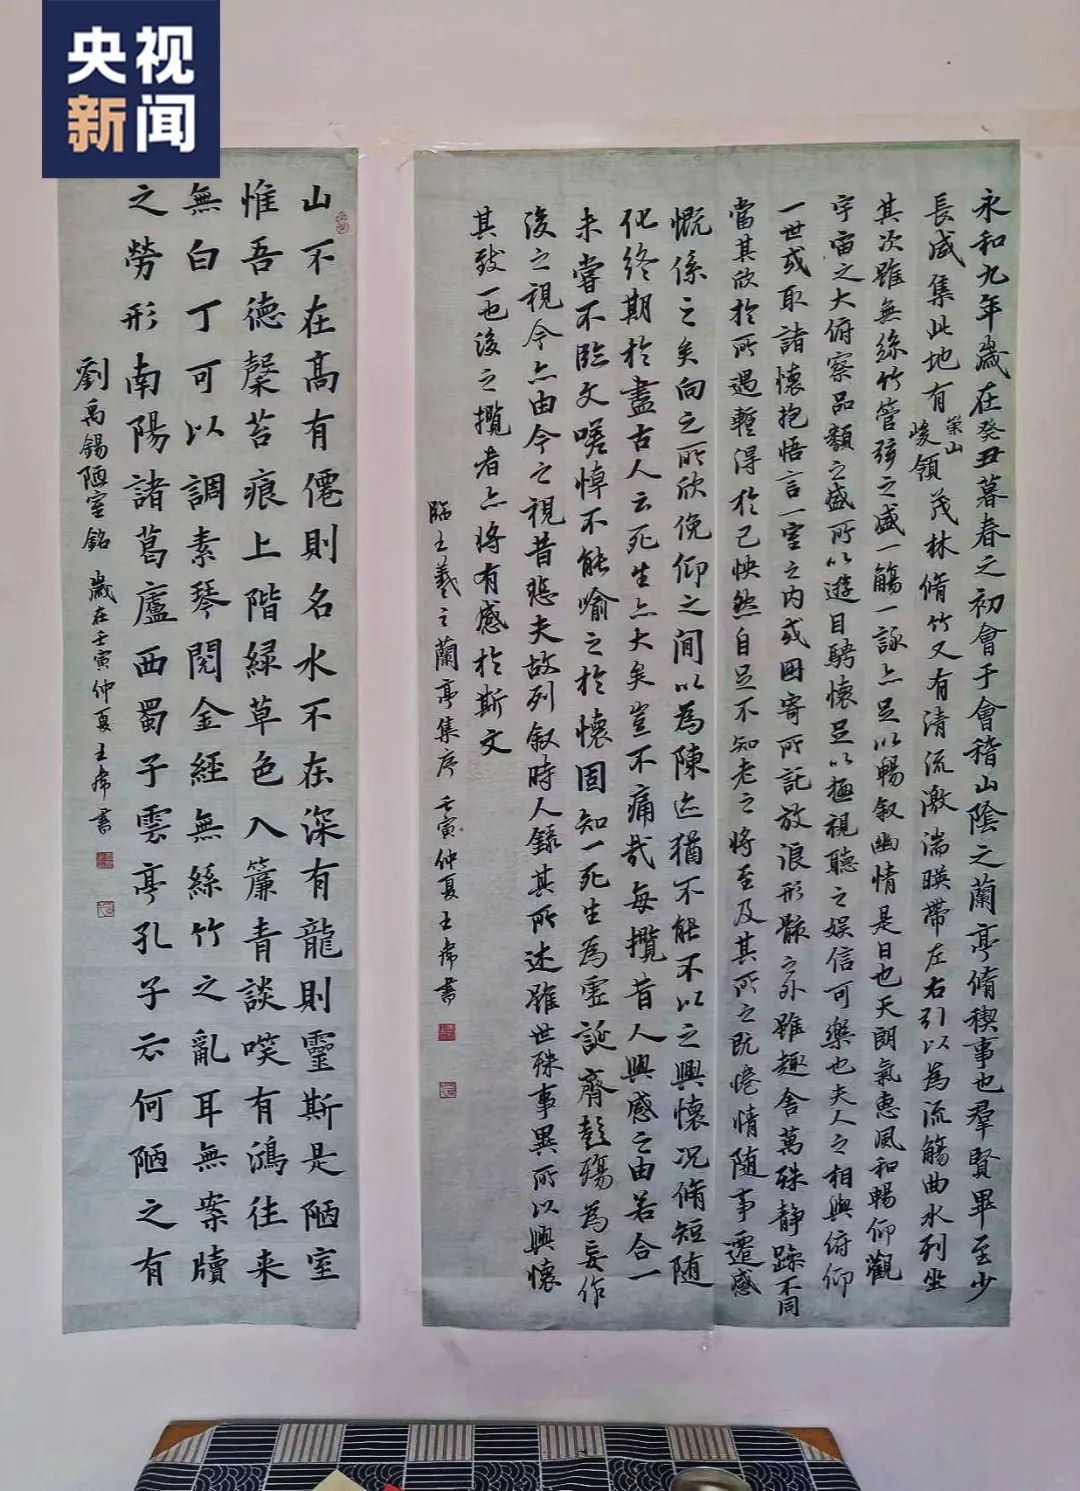 央视
新闻
永和九年歲在癸丑暮春之初會于會稽山陰之蘭亭脩稧事也羣賢畢至少
長咸集此地有崇山峻領茂林脩竹又有清流激湍暎帶左右引以為流觴曲水列坐
其次雖無絲竹管弦之盛一觴一詠亦足以暢叙幽情是日也天朗氣惠風和暢仰觀
宇宙之大俯察品類之盛所以遊目騁懷足以極視聽之娛信可樂也夫人之相與俯仰
一世或取諸懷抱悟言一室之内或因寄所託放浪形骸之外雖趣舍萬殊静躁不同
當其欣於所遇蹔得於己怏然自足不知老之將至及其所之既惓情隨事遷感
慨係之矣向之所欣俛仰之間以為陳迹猶不能不以之興懷况脩短随
化終期於盡古人云死生亦大矣豈不痛哉每攬昔人興感之由若合一
未嘗不臨文嗟悼不能喻之於懷固知一死生為虛誕齊彭殤為妄作
後之視今亦由今之視昔悲夫故列叙時人錄其所述雖世殊事異所以興懷
其致一也後之攬者亦將有感於斯文
臨王羲之蘭亭集序 壬寅仲夏王書
山不在高有僊則名水不在深有龍則靈斯是陋室
惟吾德馨苔痕上階緑草色入簾青談咲有鴻往来
無白丁可以調素琴閲金經無絲竹之亂耳無案牘
之勞形南陽諸葛廬西蜀子雲亭孔子云何陋之有
劉禹錫陋室銘 歲在壬寅仲夏王書